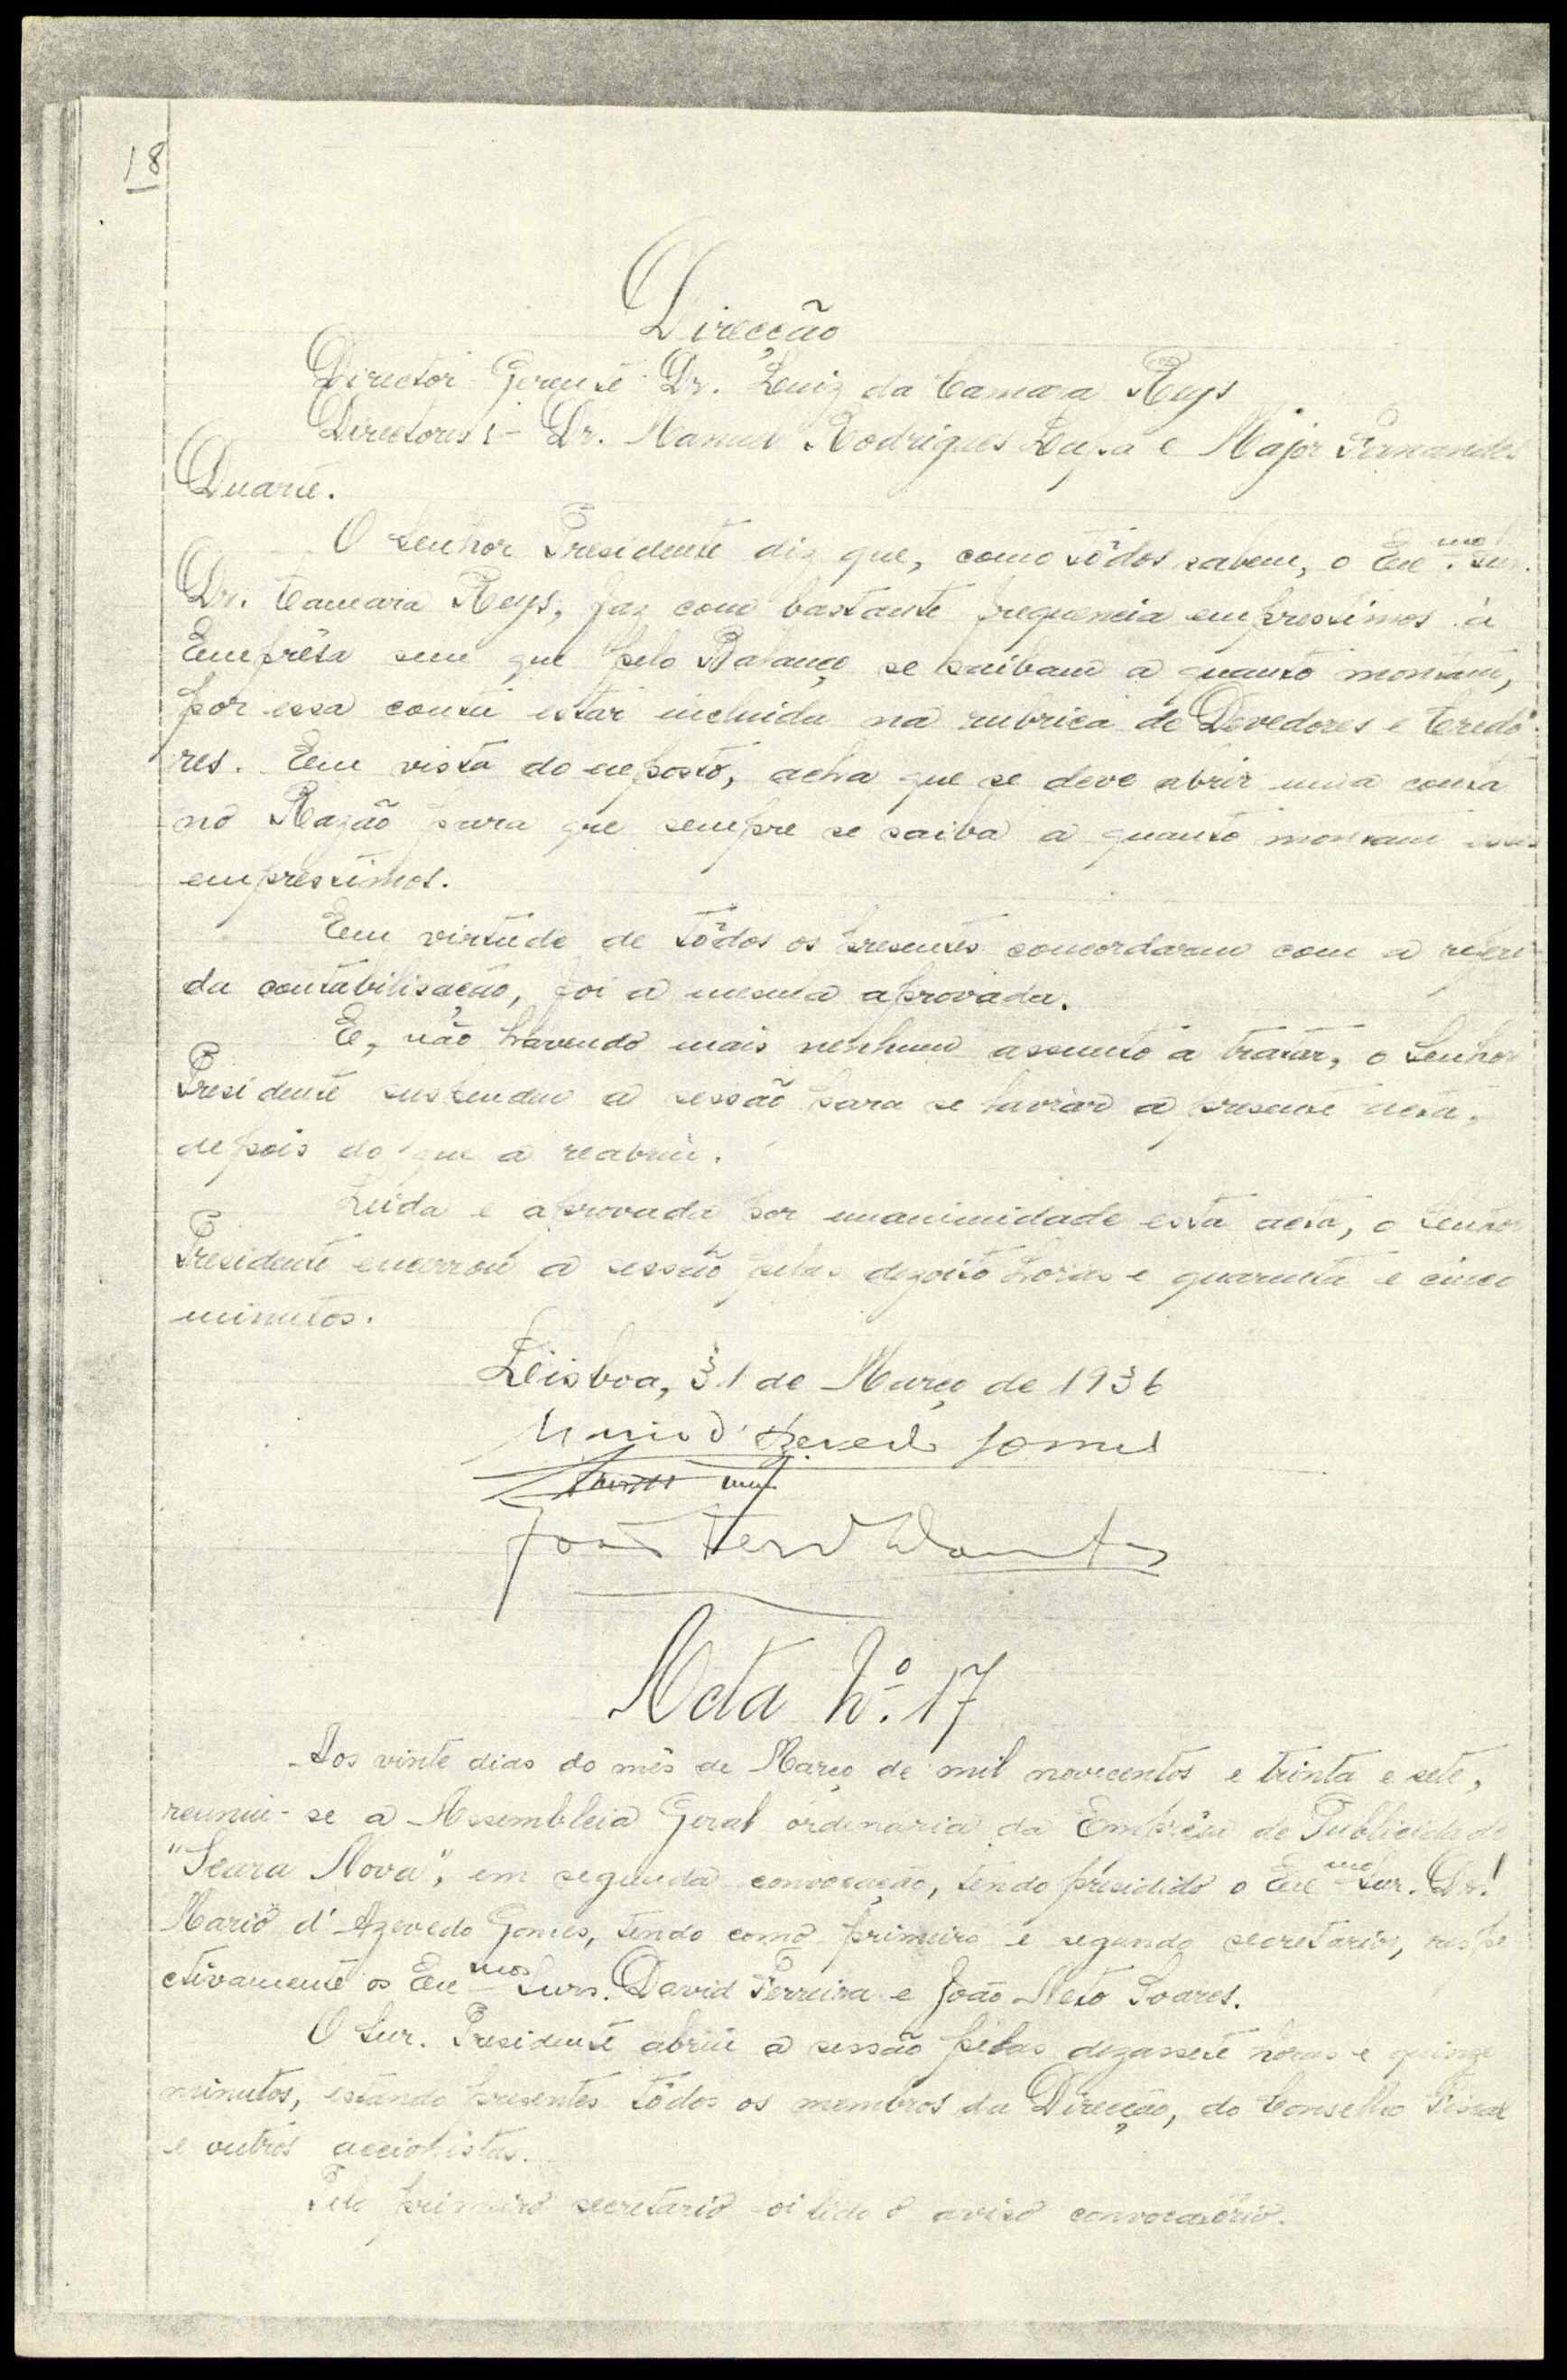 18
Direcção
Director Gerente Dr. Luiz da Camara Reys
Directores:- Dr. Manuel Rodrigues Lapa e Major Fernandes
Duarte.
O Senhor Presidente diz que, como tôdos sabem, o Exmo. Snr.
Dr. Camara Reys, faz com bastante frequencia emprestimos á
Emprêsa sem que pelo Balanço se saibam a quanto montam,
por essa conta estar incluida na rubrica de Devedores e Credô-
res. Em vista do exposto, acha que se deve abrir uma conta
no Razão para que sempre se saiba a quanto montam esses
emprestimos.
Em virtude de tôdos os presentes concordarem com a referi-
da contabilisação, foi a mesma aprovada.
E, não havendo mais nenhum assunto a tratar, o Senhor
Presidente suspendeu a sessão para se lavrar a presente acta,
depois do que a reabriu.
Lida e aprovada por unanimidade esta acta, o Senhor
Presidente encerrou a sessão pelas dezoito horas e quarenta e cinco
minutos.
Lisboa, 31 de Março de 1936
Mario d'Azevedo Gomes
João
Acta Nº. 17
Aos vinte dias do mês de Março de mil novecentos e trinta e sete,
reuniu-se a Assembleia Geral ordinaria da Emprêsa de Publicidade
"Seara Nova", em segunda convocação, tendo presidido o Exmo Snr. Dr.
Mario d'Azevedo Gomes, tendo como primeiro e segundo secretarios, respe
ctivamente os Exmos Snrs. David Ferreira e João Neto Soares.
O Snr. Presidente abriu a sessão pelas dezassete horas e quinze
minutos, estando presentes tôdos os membros da Direcção, do Conselho Fiscal
e outros accionistas.
Pelo primeiro secretario foi lido o aviso convocatório.